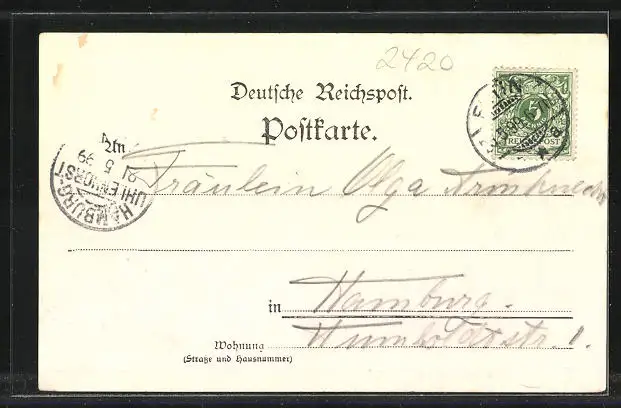 2420
Deutsche Reichspost.
Postkarte.
REICHSPOST
HAMBURG-UHLENHORST
21 5 99
Fräulein Olga Armknecht
in Hamburg.
Humboldtstr. 1.
Wohnung
(Straße und Hausnummer)